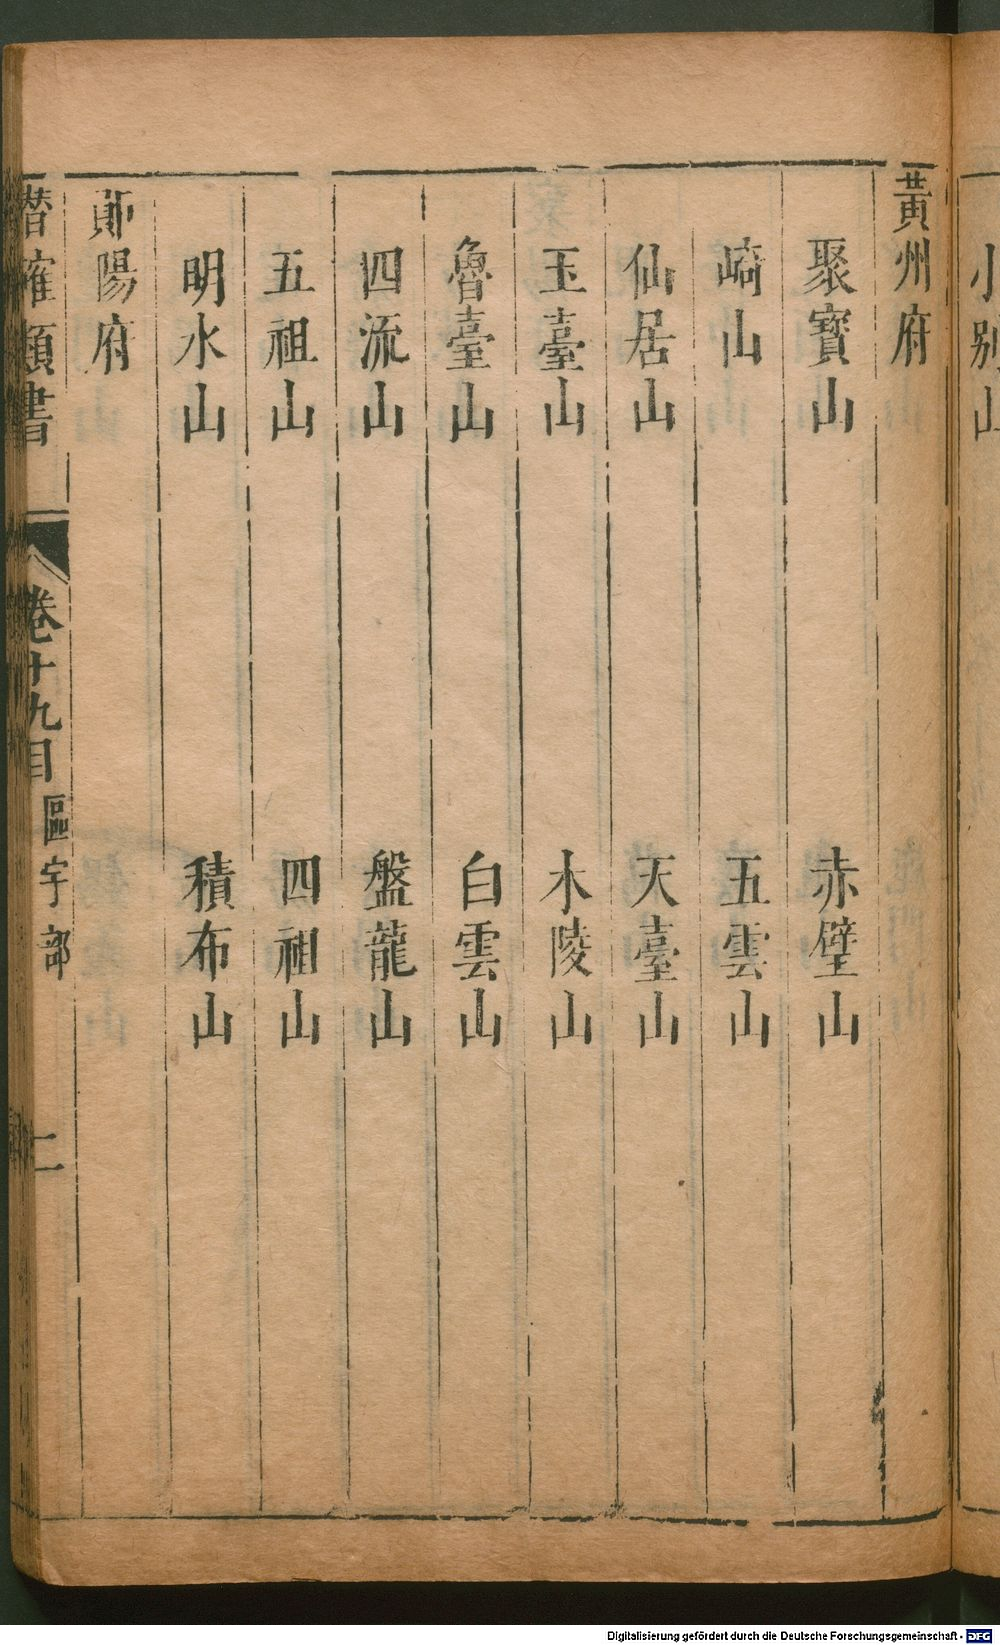 小別山
黃州府
聚寶山 赤壁山
崎山 五雲山
仙居山 天臺山
玉臺山 木陵山
魯臺山 白雲山
四流山 盤龍山
五祖山 四祖山
明水山 積布山
鄖陽府
潛確類書 卷十九目 區宇部 二
Digitalisierung gefördert durch die Deutsche Forschungsgemeinschaft - DFG